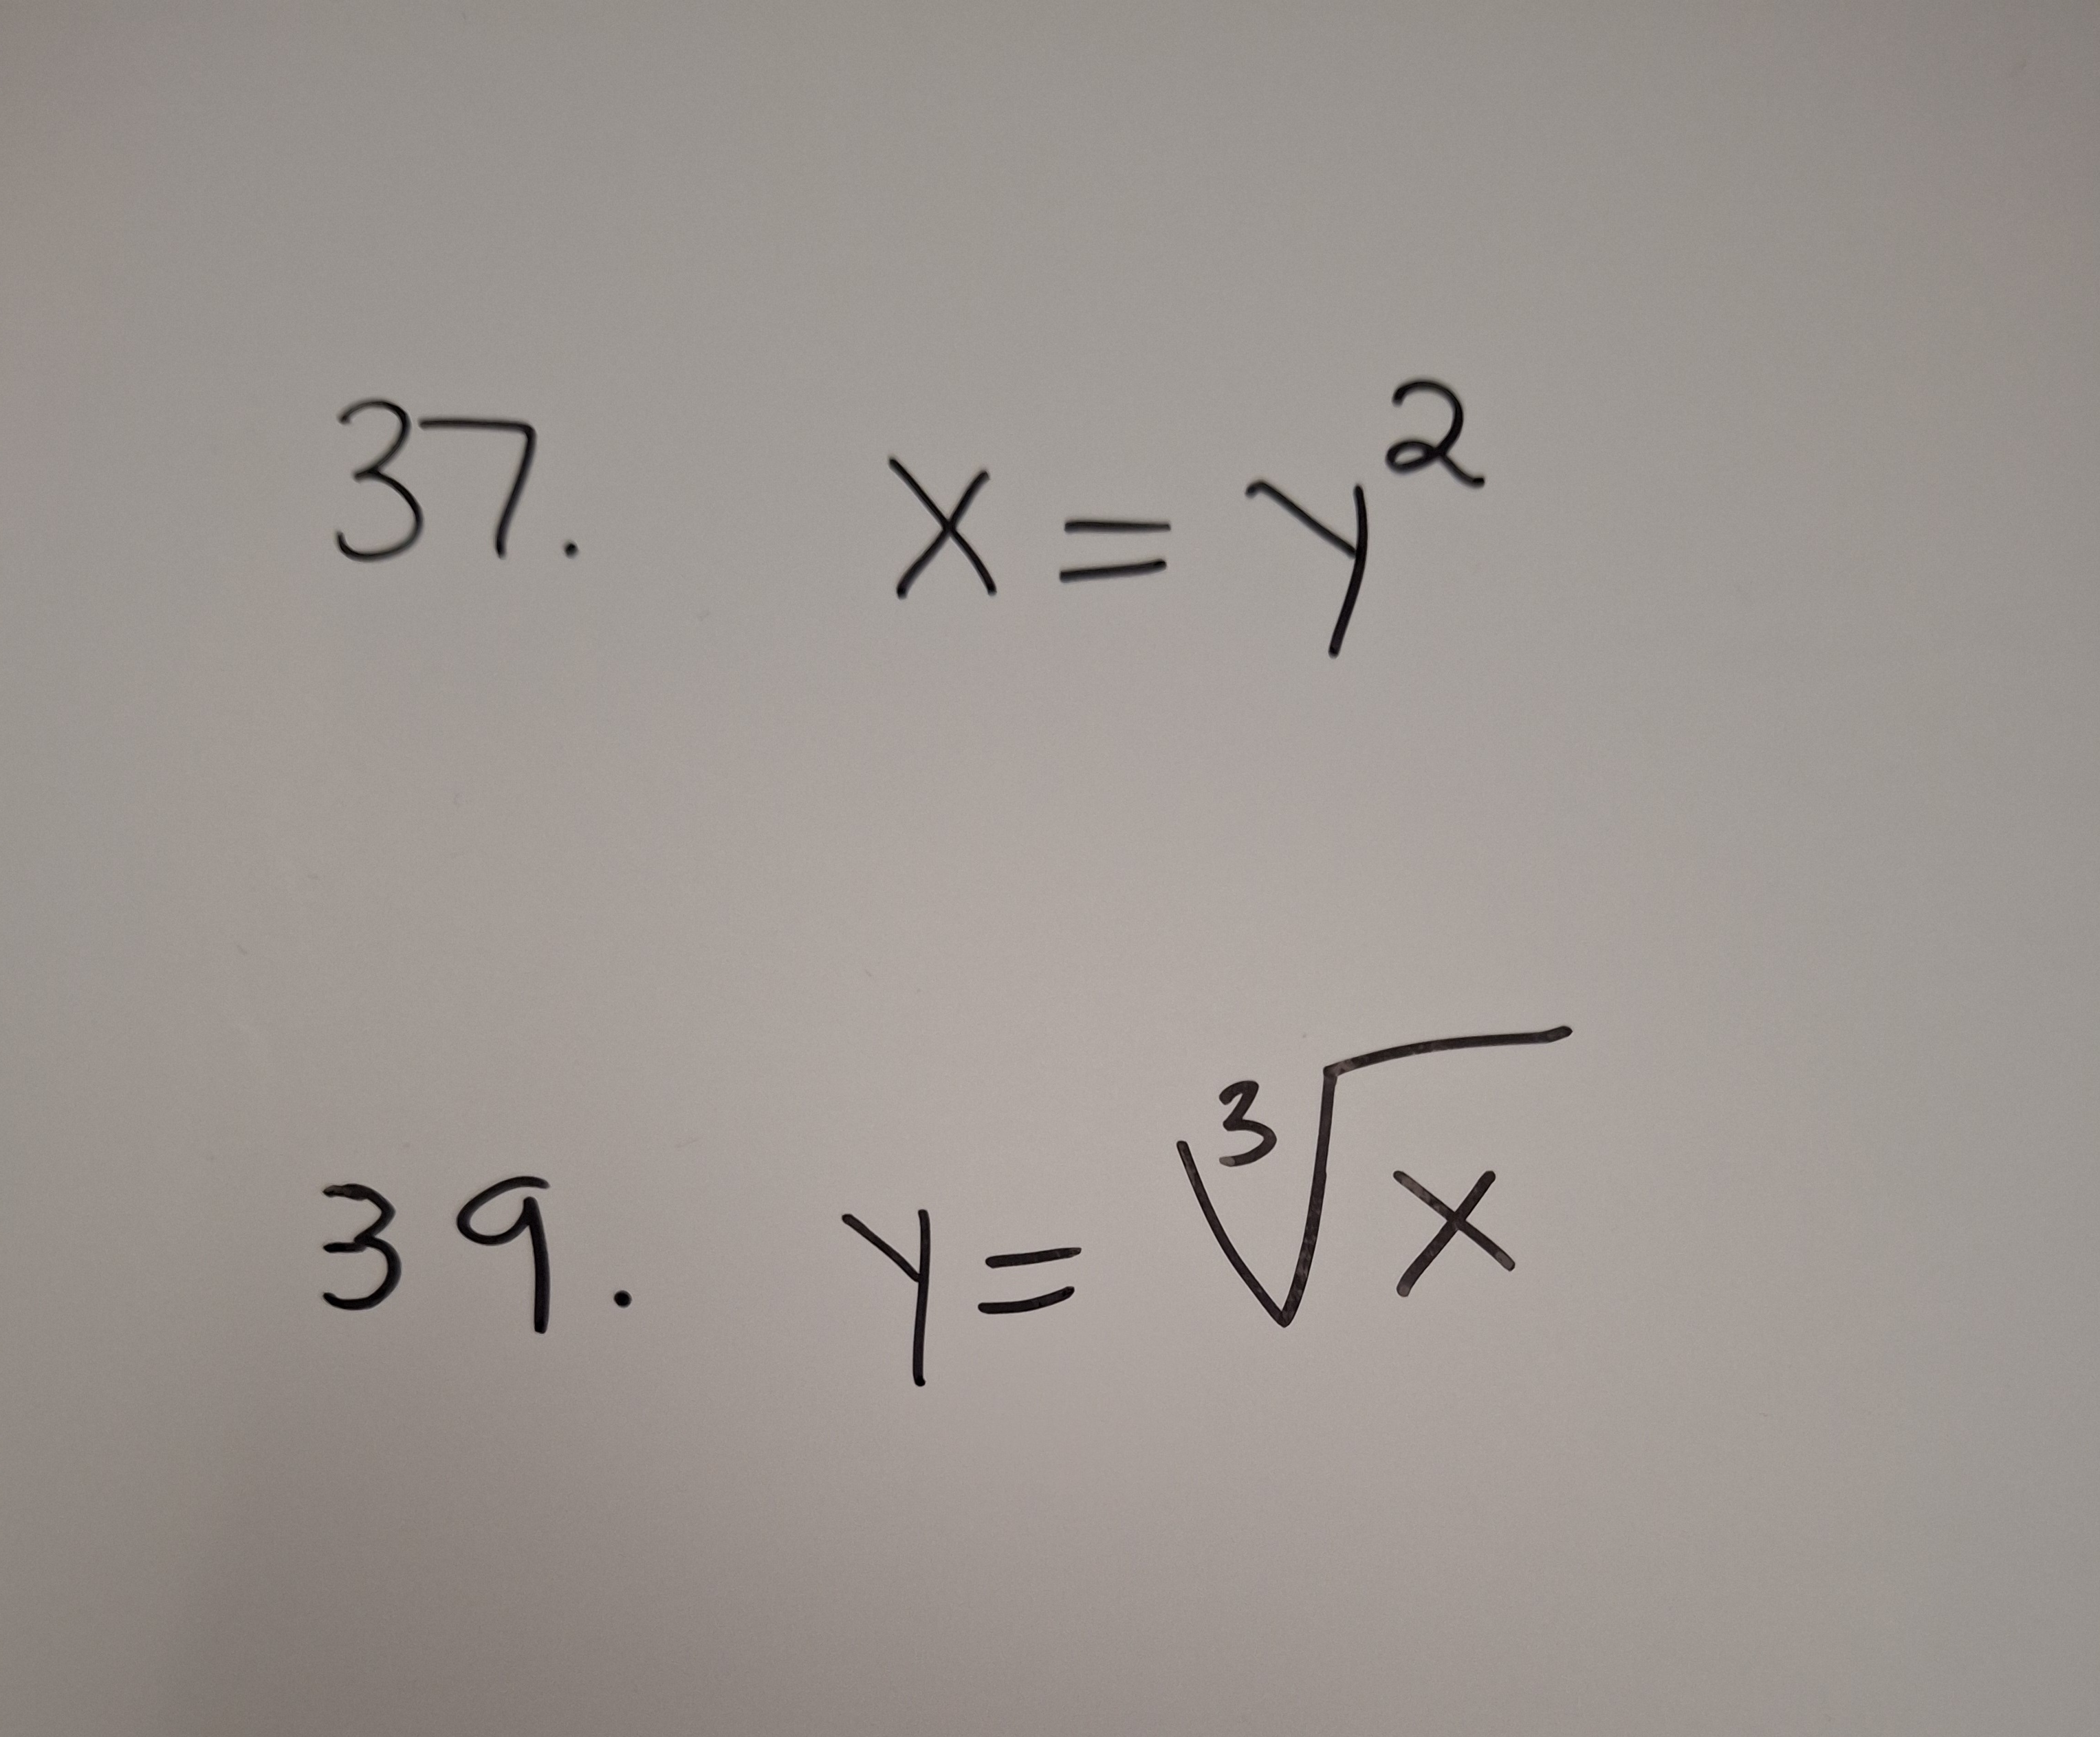 37. x = y²
39. y = ∛x